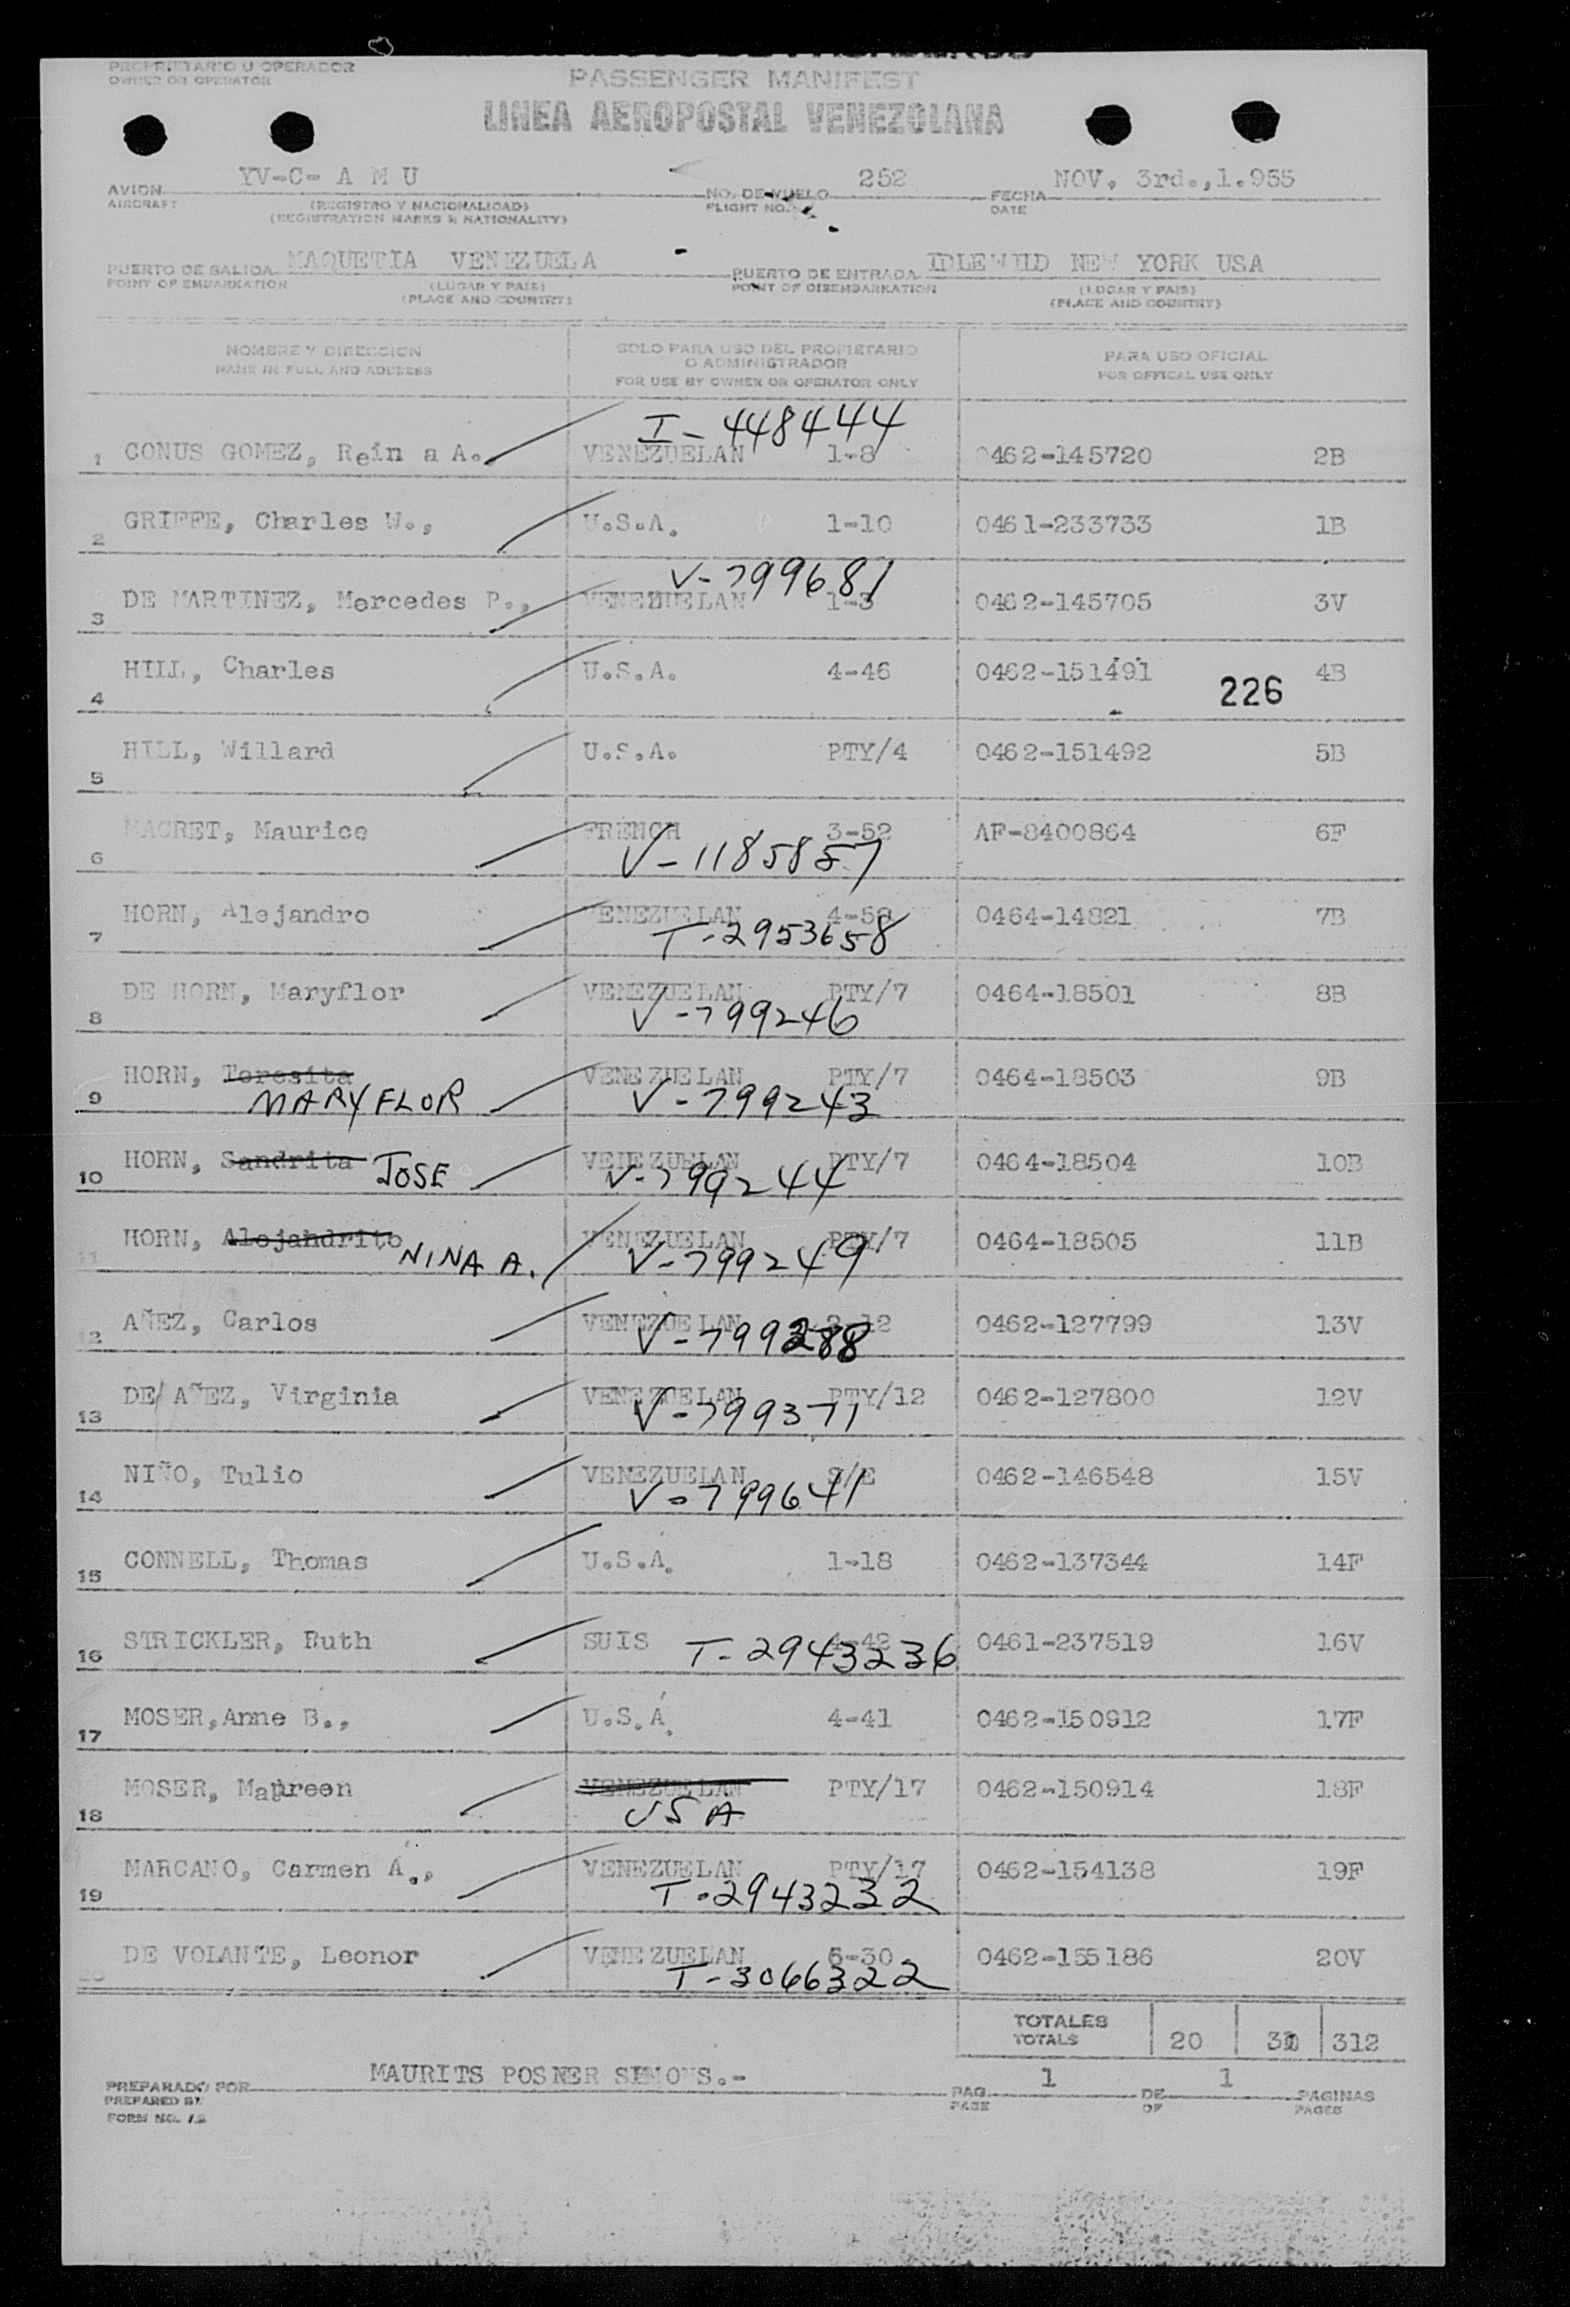 PROPRIETARIO U OPERADOR
OWNER OR OPERATOR
PASSENGER MANIFEST
LINEA AEROPOSTAL VENEZOLANA
AVION YV-C- A M U NO. DE VUELO 252 FECHA NOV. 3rd.,1.955
AIRCRAFT (REGISTRO Y NACIONALIDAD) FLIGHT NO. DATE
(REGISTRATION MARKS & NATIONALITY)
PUERTO DE SALIDA MAQUETIA VENEZUELA PUERTO DE ENTRADA IDLEWILD NEW YORK USA
POINT OF EMBARKATION (LUGAR Y PAIS) POINT OF DISEMBARKATION (LUGAR Y PAIS)
(PLACE AND COUNTRY) (PLACE AND COUNTRY)
NOMBRE Y DIRECCION SOLO PARA USO DEL PROPIETARIO PARA USO OFICIAL
O ADMINISTRADOR
NAME IN FULL AND ADDRESS FOR USE BY OWNER OR OPERATOR ONLY FOR OFFICAL USE ONLY
I-448444
1 CONUS GOMEZ, Rein a A. VENEZUELAN 1-8 0462-145720 2B
2 GRIFFE, Charles W., U.S.A. 1-10 0461-233733 1B
V-799681
3 DE MARTINEZ, Mercedes P., VENEZUELAN 1-3 0462-145705 3V
4 HILL, Charles U.S.A. 4-46 0462-151491 4B
226
5 HILL, Willard U.S.A. PTY/4 0462-151492 5B
6 MACRET, Maurice FRENCH 3-52 AF-8400864 6F
V-1185857
7 HORN, Alejandro VENEZUELAN 0464-14821 7B
T-2953658
8 DE HORN, Maryflor VENEZUELAN PTY/7 0464-18501 8B
V-799246
9 HORN, Teresita VENEZUELAN PTY/7 0464-18503 9B
MARYFLOR V-799243
10 HORN, Sandrita JOSE VENEZUELAN PTY/7 0464-18504 10B
V-799244
11 HORN, Alejandrito VENEZUELAN PTY/7 0464-18505 11B
NINA A. V-799249
12 AÑEZ, Carlos VENEZUELAN 0462-127799 13V
V-799288
13 DE AÑEZ, Virginia VENEZUELAN PTY/12 0462-127800 12V
V-799371
14 NIÑO, Tulio VENEZUELAN S/E 0462-146548 15V
V-799641
15 CONNELL, Thomas U.S.A. 1-18 0462-137344 14F
16 STRICKLER, Ruth SUIS 4-42 0461-237519 16V
T-2943236
17 MOSER,Anne B., U.S.A. 4-41 0462-150912 17F
18 MOSER, Maureen VENEZUELAN PTY/17 0462-150914 18F
USA
19 MARCANO, Carmen A., VENEZUELAN PTY/17 0462-154138 19F
T-2943232
20 DE VOLANTE, Leonor VENEZUELAN 6-30 0462-155186 20V
T-3066322
TOTALES
TOTALS 20 312
PREPARADO POR MAURITS POSNER SIMONS.- PAG. 1 DE 1 PAGINAS
PREPARED BY PAGE OF PAGES
FORM NO.